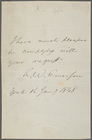 I have much pleasure
in complying with
your request.
R. W. Emerson